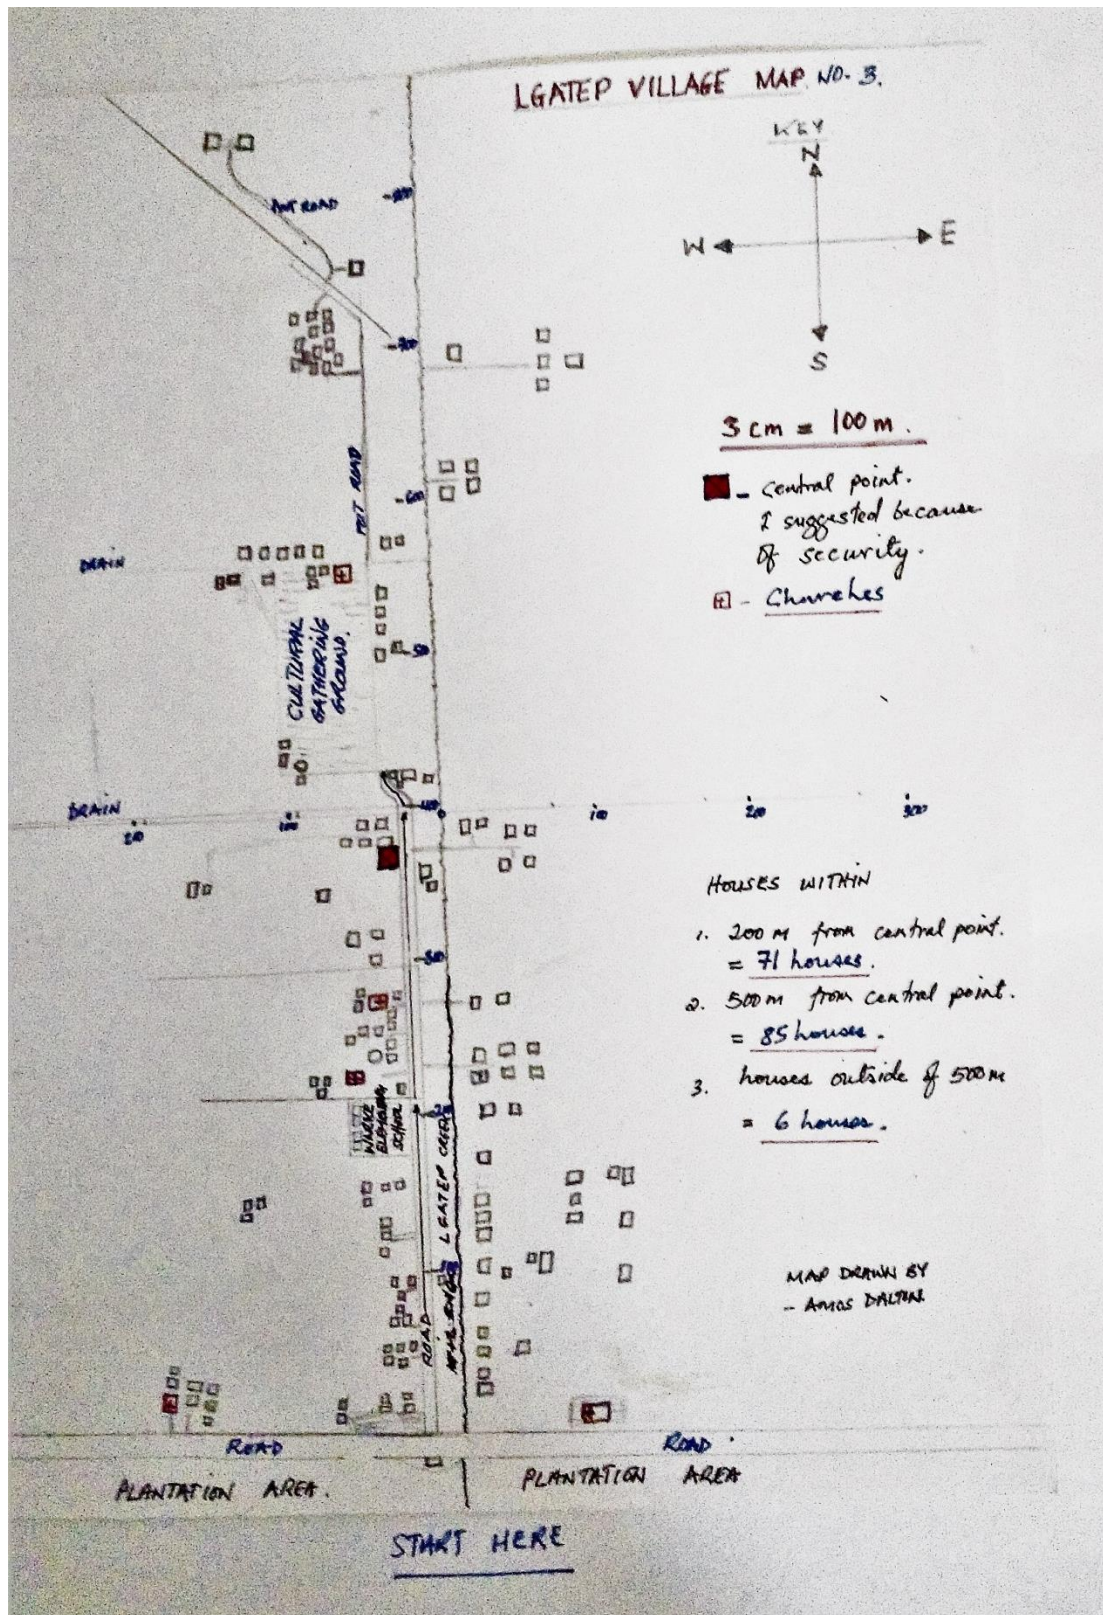 LGATEP VILLAGE MAP NO. 3.
KEY
N
W
E
S
3 cm = 100 m.
- central point.
I suggested because
of security.
- Churches
ROAD
700
600
DRAIN
CULTURAL
GATHERING
GROUND.
50
DRAIN
200
100
400
0
100
200
300
HOUSES WITHIN
1. 200 m from central point.
= 71 houses.
2. 500m from central point.
= 85 houses.
3. houses outside of 500m
= 6 houses.
300
ELEMENTARY
SCHOOL
LGATEP CREEK
ROAD
MAP DRAWN BY
- AMOS DALTON.
ROAD
ROAD
PLANTATION AREA.
PLANTATION AREA
START HERE